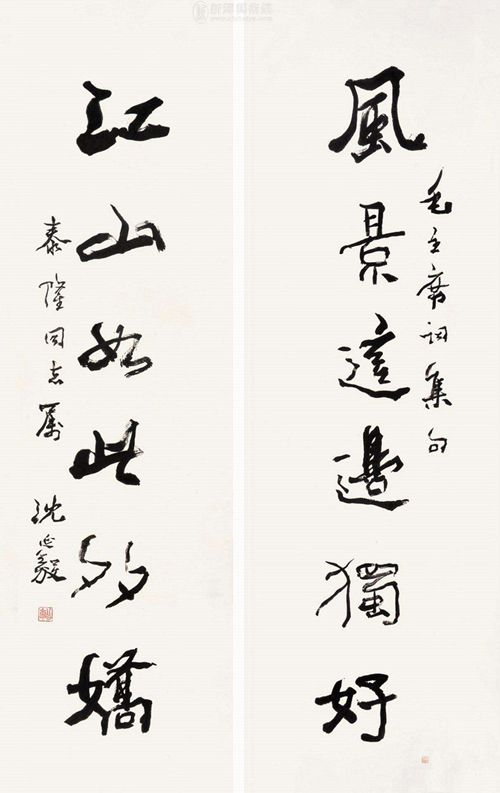 毛主席詞集句
風景這邊獨好
江山如此多嬌
泰隆同志属
沈延毅